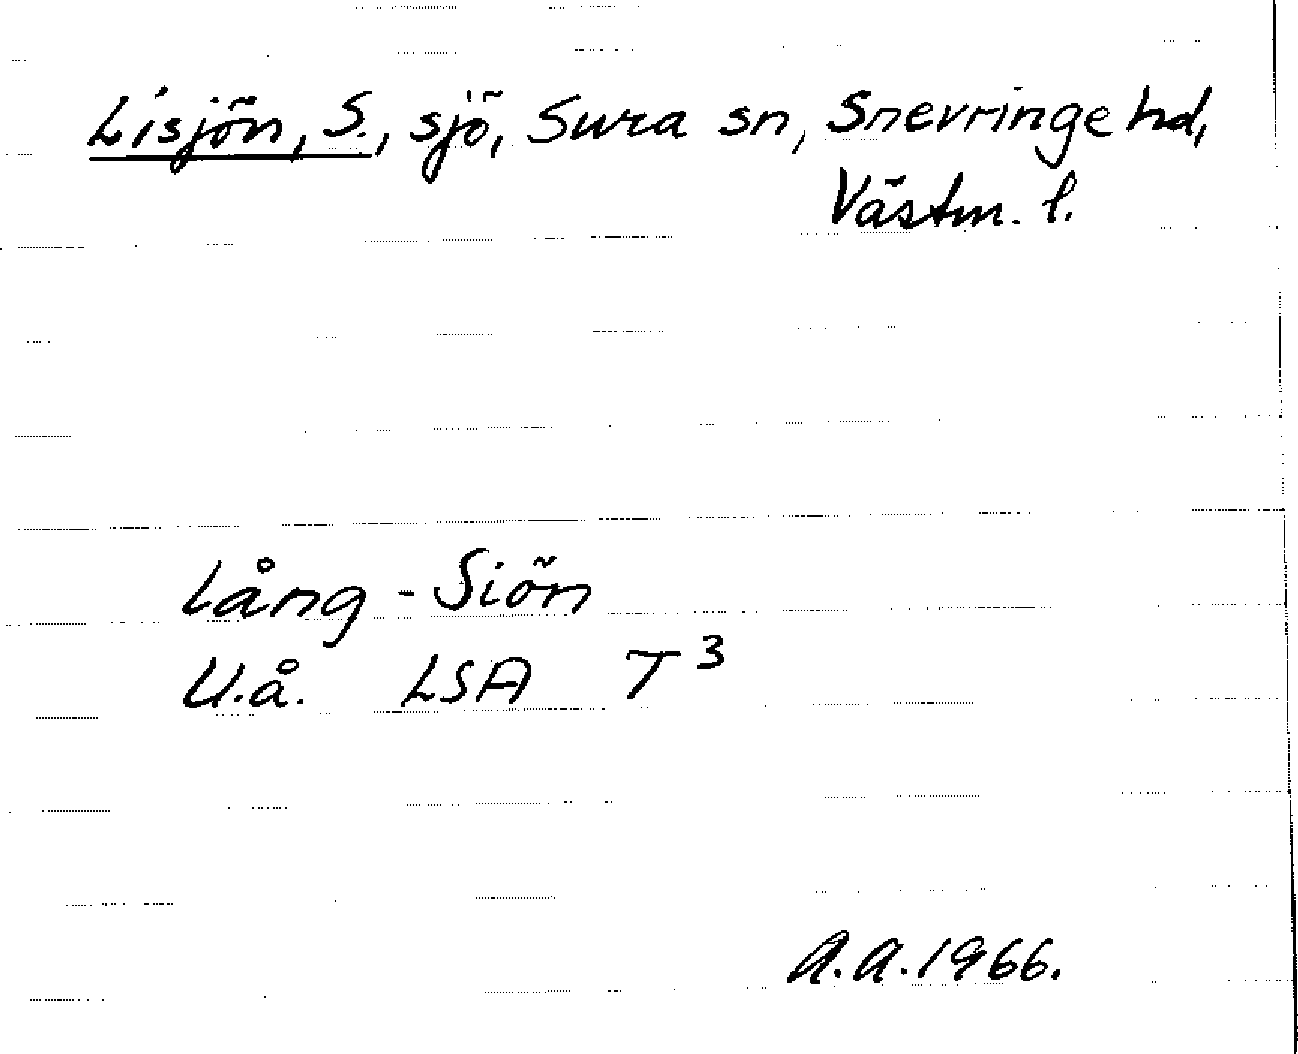 Lisjön, S., sjö, Sura sn, Snevringe hd,
Västm. l.
Lång-Siön
U.å. LSA T³
A.A.1966.